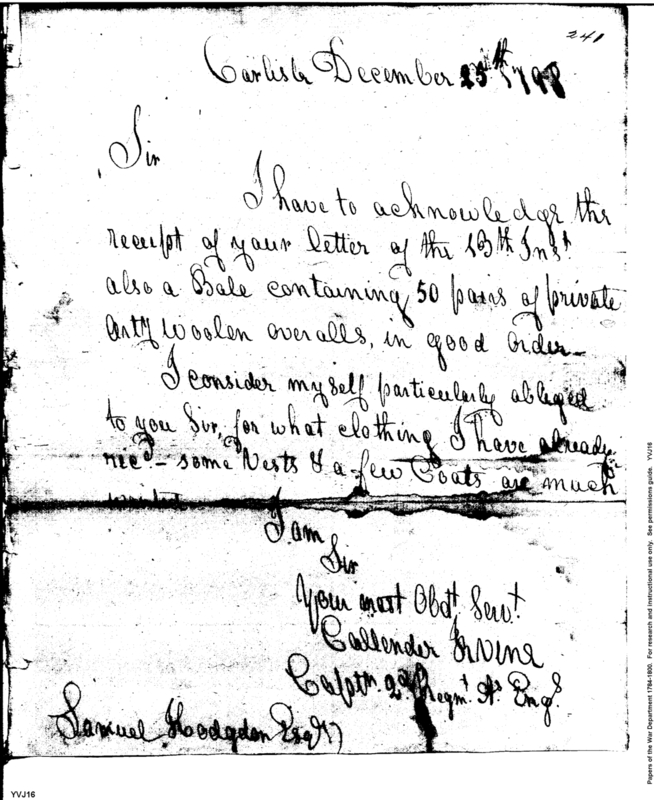 240
Carlisle December 25th 1798
Sir
I have to acknowledge the
receipt of your letter of the 13th Inst
also a Bale containing 50 pairs of private
Arty woolen overalls, in good order—
I consider myself particularly obliged
to you Sir, for what clothing I have already
recd— some Vests & a few Coats are much
I am
Sir
Your most Obdt Servt
Callender Irvine
Captn. 2d Regmt As Engs
Samuel Hodgdon Esqr
YVJ16
Papers of the War Department 1784-1800. For research and instructional use only. See permissions guide. YVJ16